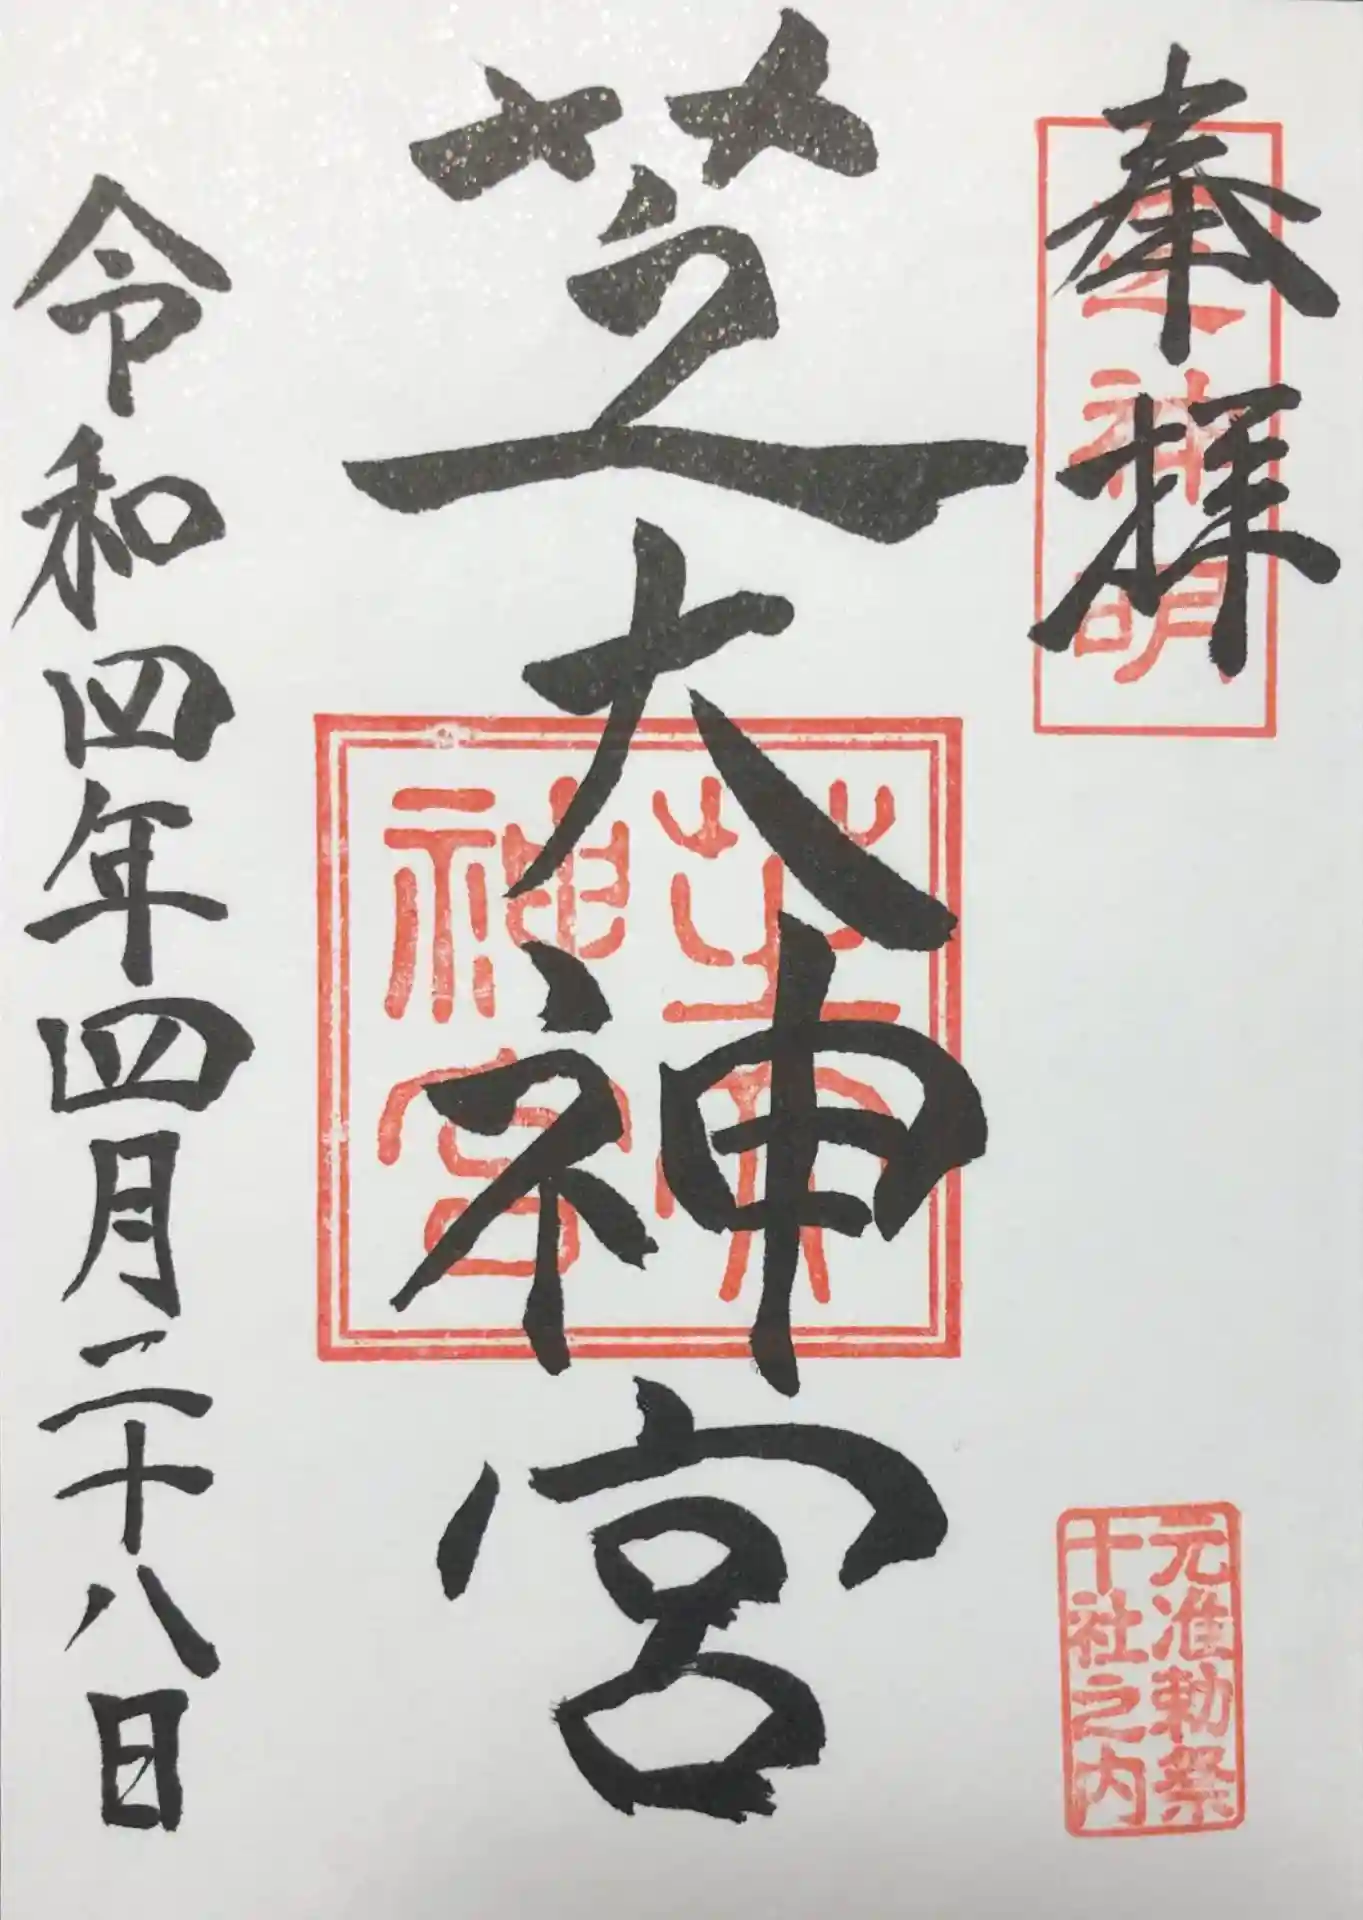 奉拝
芝神明
元准勅祭
十社之内
芝大神宮
芝大
神宮
令和四年四月二十八日